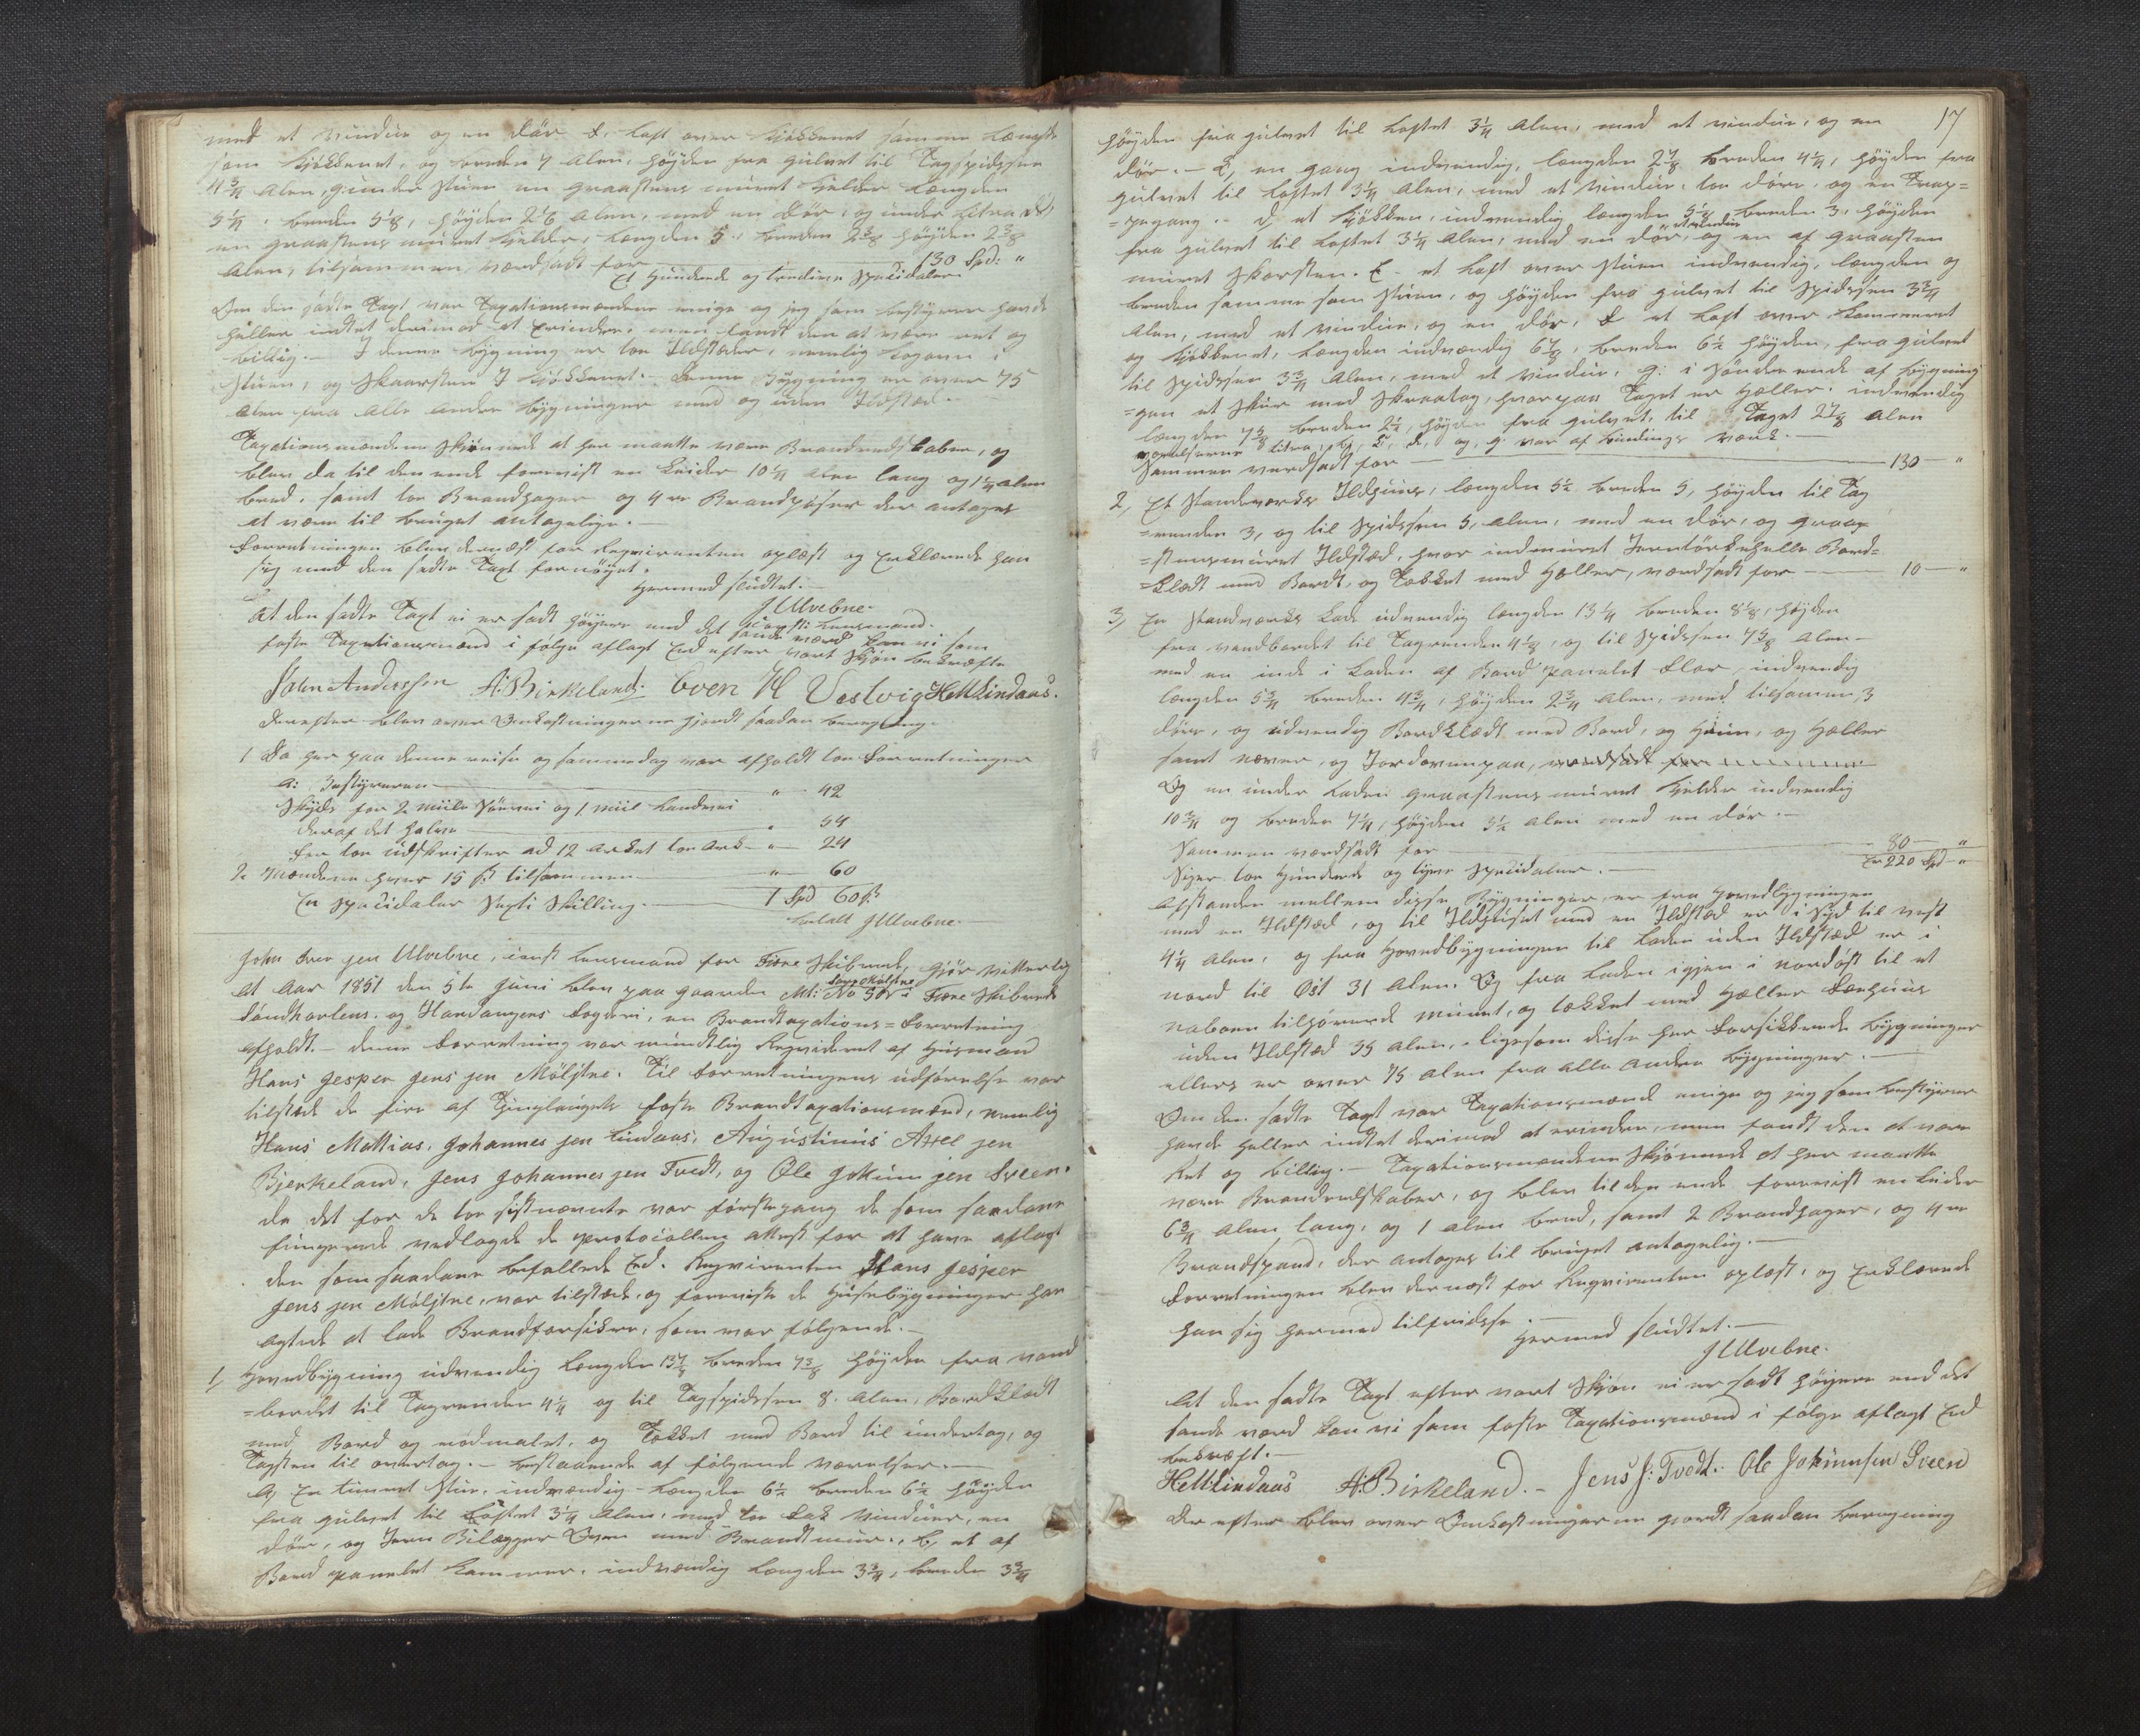 med et Vindue og en Dør. f. Loft over Kjøkkenet samme Længde
som Kjøkkenet, og breden 7 Alen, høyden fra gulvet til Tagspidssen
4 3/4 Alen, g: under stuen en graasteens muret Kjelder Længden
5 1/4, breden 5 1/8, høyden 2 1/8 Alen, med en Dør, og under Litra, d,
en graasteens muret Kjelder, Længden 5, breden 2 3/8 høyden 2 3/8
Alen, tilsammen værdsadt for 130 Spd: "
Et Hundrede og tredive Specidaler.
Om den sadte Taxt var Taxationsmændene enige og jeg som bestyrer havde
heller indtet derimod at erindre, men fandt den at være ret og
billig. I denne bygning er toe Ildstæder, nemlig Kogovn i
Stuen, og Skaarsteen I Kjøkkenet. Denne bygning er over 75
Alen fra alle andre bygninger med og uden Ildsted.
Taxationsmændene Skjønnede at her maatte være Brandredskaber, og
blev da til den ende forevist en Leider 10 1/4 alen lang og 1 1/4 alen
bred, samt toe Brandhager og 4re Brandspøser der antages
at være til bruget antagelige.
Forretningen blev dernæst for Reqvirenten oplæst og Erklærede han
sig med den sadte Taxt fornøyet.
Hermed sludtet.
J Ulvebne.
const: Lensmand.
At den sadte Taxt ei er sadt høyere end det sande værd kan vi som
faste Taxationsmænd i følge aflagt Eed efter vort Skjøn bekræfte
John Anderssen A: Birkeland. Even H Vestvig HMLindaas.
Derefter blev over Omkostningerne gjordt saadan beregning.
1 Da her paa denne reise og sammedag var afholdt toe Forretninger
a: Bestyreren " 42
Skyds for 2 miile Søevei og 1 miil Landevei
deraf det halve " 54
for toe udskrifter ad 12 arket toe Ark " 24
2. Mændene hver 15 ß tilsammen " 60
En Specidaler Sexti Skilling. 1 Spd 60 ß
betalt J Ulvebne.
John Iver jen Ulvebne, const Lensmand for Fiære Skibrede, Gjør vitterlig
at Aar 1851 den 5te Juni blev paa gaarden Mt: No 50 i Fiære Skibrede
Søndhorlens. og Hardangers Fogderi, en Brandtaxations=Forretning
afholdt. denne Forretning var mundtlig Reqvideret af Husmand
Hans Jesper Jens jen Møljtne. Til Forretningens udførelse var
tilstæde de fire af Tinglaugets faste Brandtaxationsmænd, nemlig
Hans Mathias, Johannes jen Lindaas, Augustinus Axel jen
Bjerkeland, Jens Johannes jen Tvedt, og Ole Jokum jen Sveen.
da det for de toe sistnævnte var førstegang de som saadane
fungerede vedlagde de protocollen attest for at have aflagt
den som saadane befallede Eed. Reqvirenten Hans Jesper
Jens jen Møljtne, var tilstæde, og forevisste de Husebygninger han
agtede at lade Brandforsikre, som var følgende.
1, Hovedbygning udvendig Længden 13 1/2 breden 7 3/8 høyden fra vand
=bordet til Tagrenden 4 1/4 og til Tagspidssen 8. Alen, Bordklædt
med Bord og rødmalet, og Tækket med Bord til undertag, og
Tagsten til overtag. bestaaende af følgende værelser.
a, En timret Stue, indvændig Længden 6 1/2 breden 6 1/2 høyden
fra gulvet til Loftet 3 1/4 Alen, med toe Fak Vinduer, en
dør, og Jern Bilægger Oven med Brandtmuur. b, et af
Bord panelet Kammer, indvændig Længden 3 3/4, breden 3 3/4
17
høyden fra gulvet til Loftet 3 1/4 Alen, med et vindue, og en
dør. C, en gang indvendig, længden 2 7/8 breden 4 1/4, høyden fra
gulvet til Loftet 3 1/4 Alen, med et Vindue, toe døre, og en Trap=
=pegang. d, et Kjøkken, indvendig længden 5 1/8 breden 3, høyden
fra gulvet til Loftet 3 1/4 Alen, med en dør, et vindue og en af graasten
muret Skorsten. E. et Loft over Stuen indvendig, længden og
breden samme som Stuen, og høyden fra gulvet til Spidssen 3 3/4
Alen, med et vindue, og en dør, F et Loft over Kammeret
og Kjøkkenet, Længden indvændig 6 7/8, breden 6 1/2 høyden, fra gulvet
til Spidssen 3 3/4 Alen, med et Vindue, g: i Søndre ende af bygnin
=gen et Skur med Skraatag, hvorpaa Taget er Heller. indvendig
længden 7 5/8 breden 2 1/2, høyden fra gulvet, til Taget 2 7/8 Alen
værelserne Litra, b, C, d, og, g. var af bindings værk.
Sammen verdsadt for 130 "
2, Et Standværks Ildhuus, længden 5 1/2 breden 5, høyden til Tag
=renden 3, og til Spidssen 5, Alen, med en dør, og graa
=steensmuret Ildsted, hvor indmuret Jerntørkehelle Bord=
=klædt med Bordt, og Tækket med Heller, værdsadt for 10 "
3, En Standværks Lade udvendig længden 13 1/4 breden 8 1/8, høyden
fra vandbordet til Tagrenden 4 1/8, og til Spidssen 7 5/8 Alen
med en inde i Laden af Bord panelet Flor, indvendig
længden 5 3/4 breden 4 3/4, høyden 2 3/4 Alen, med tilsammen 3
døre, og udvendig Bordklædt med Bord, og Huun, og Heller
samt næver, og Jordovenpaa, værdsadt for
Og en under Laden graasteens muret Kjelder indvendig
10 3/4 og breden 7 1/4, høyden 3 1/2 Alen med en dør.
Sammen værdsadt for 80 "
Siger toe Hundrede og tyve Specidaler. Er 220 Spd "
Afstanden mellem disse Bygninger, er fra Hovedbygningen
med en Ildsted, og til Ildhuset med en Ildsted er i Syd til vest
4 1/4 alen, og fra Hovedbygningen til Laden uden Ildsted er i
nord til Øst 31 Alen. Og fra Laden igjen i nordøst til et
naboen tilhørende muret, og tækket med Heller Fæehuus
uden Ildsted 35 Alen, ligesom disse her Forsikkrede bygninger
ellers er over 75 Alen fra alle andre bygninger.
Om den sadte Taxt var Taxationsmænd enige og jeg som bestyrer
havde heller indtet derimod at erindre, men fandt den at være
Ret og billig. Taxationsmændene Skjønnede at her maatte
være Brandredskaber, og blev til den ende forevist en Leider
6 3/4 Alen lang, og 1 alen bred, samt 2 Brandhager, og 4re
Brandspand, der antages til bruget antagelig.
Forretningen blev dernæst for Reqvirenten oplæst, og Erklærede
han sig hermed tilfridsse.
Hermed sludtet.
J Ulvebne.
At den sadte Taxt efter vort Skjøn ei er sadt høyere end det
sande værd kan vi som faste Taxationsmænd i følge aflagt Eed
bekræfte.
HMLindaas A: Birkeland. Jens J: Tvedt. Ole Jokumsen Sveen
Derefter blev over Omkostningerne gjordt saadan beregning